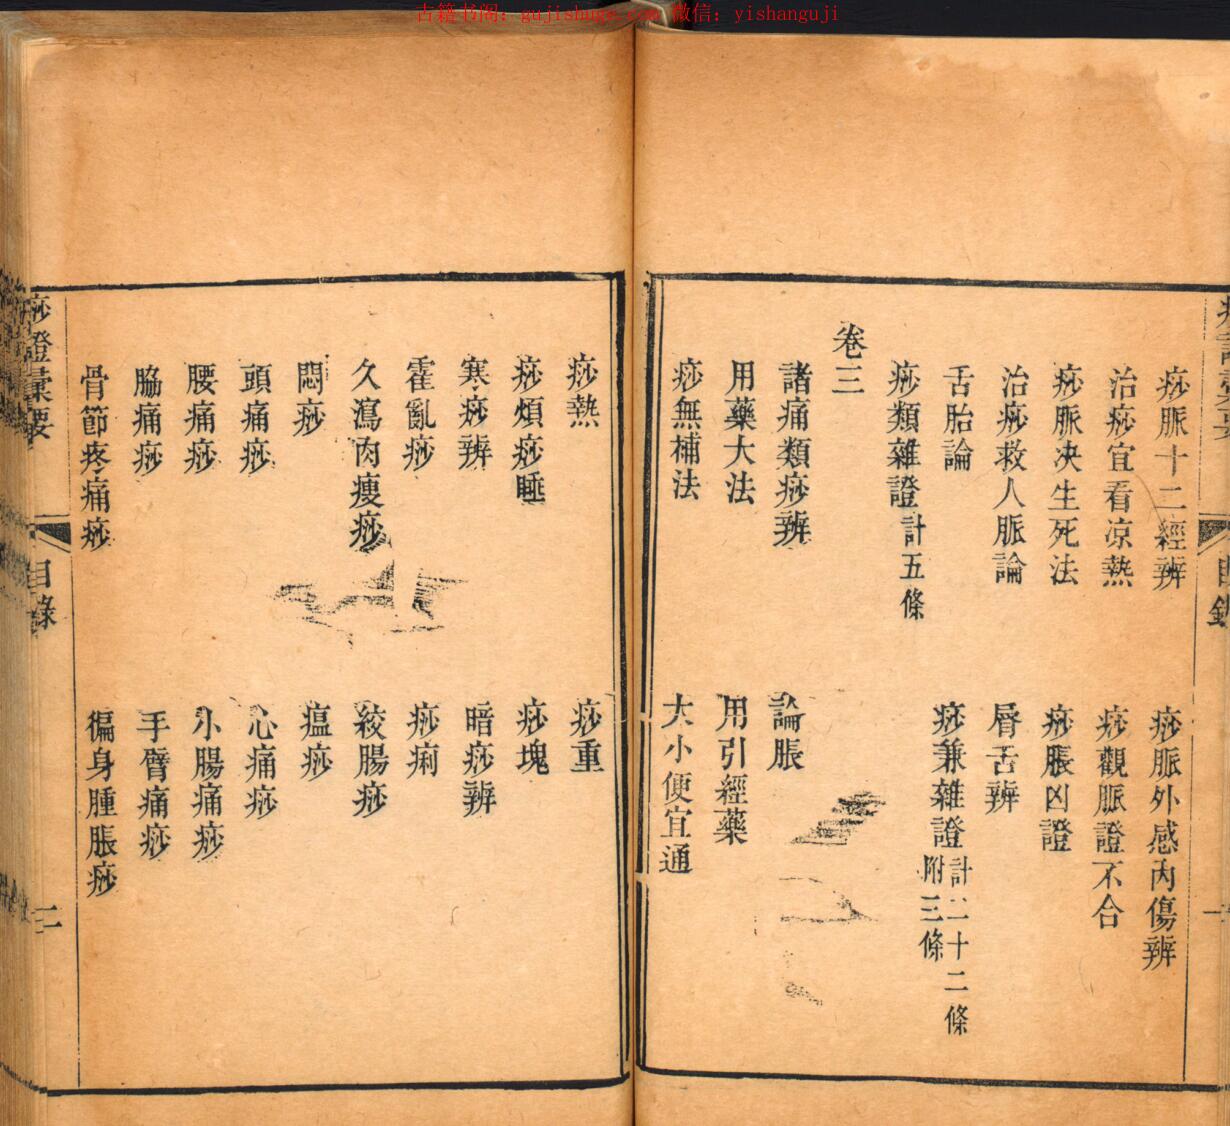 古籍书阁：gujishuge.com 微信：yishanguji
痧脈十二經辨　痧脈外感內傷辨
治痧宜看凉熱　痧觀脈證不合
痧脈决生死法　痧脹凶證
治痧救人脈論　唇舌辨
舌胎論　痧兼雜證計二十二條附三條
痧類雜證計五條
卷三
諸痛類痧辨　論脹
用藥大法　用引經藥
痧無補法　大小便宜通
痧熱　痧重
痧煩痧睡　痧塊
寒痧辨　暗痧辨
霍亂痧　痧痢
久瀉肉瘦痧　絞腸痧
悶痧　瘟痧
頭痛痧　心痛痧
腰痛痧　小腸痛痧
脇痛痧　手臂痛痧
骨節疼痛痧　徧身腫脹痧
痧證彙要　目錄